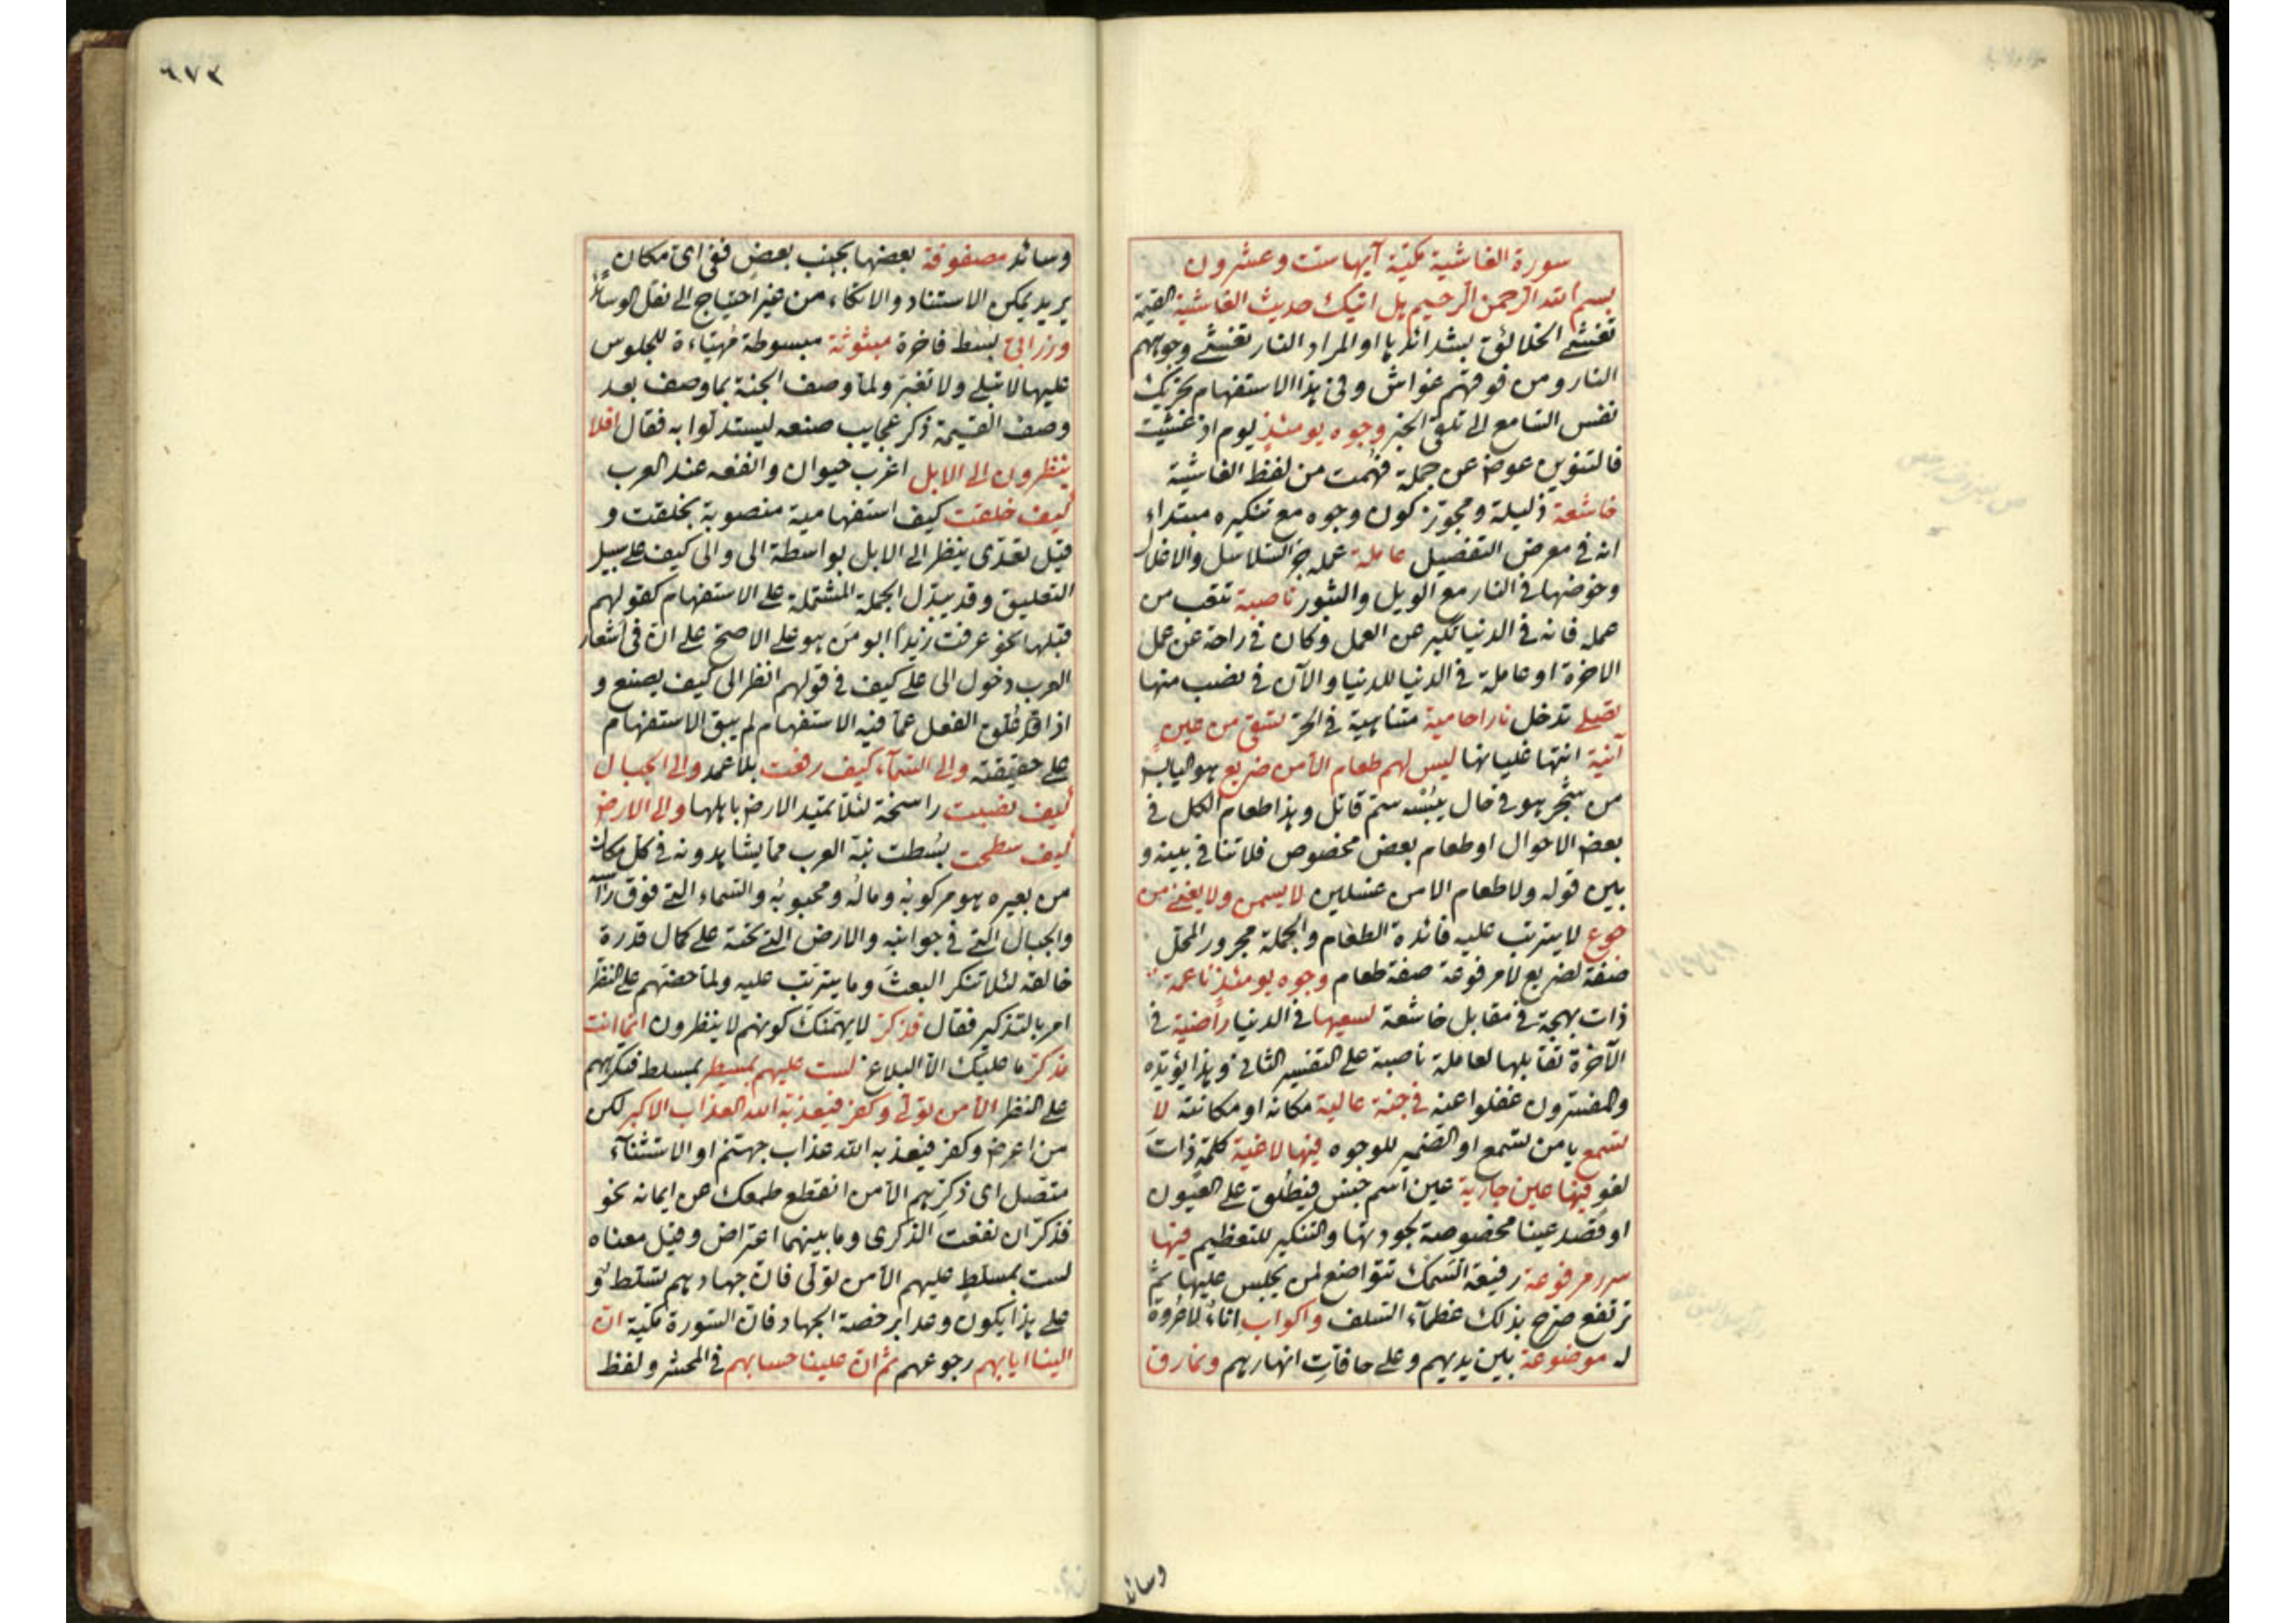 سورة الغاشية مكية آيها ست وعشرون
بسم الله الرحمن الرحيم هل اتيك حديث الغاشية القيمة
تغشى الخلائق بشدائدها او المراد النار تغشى وجوههم
النار ومن فوقهم غواش وفى هذا الاستفهام تحريك
نفس السامع الى تلقى الخبر وجوه يومئذ يوم اذ غشيت
فالتنوين عوض عن جملة فهمت من لفظ الغاشية
خاشعة ذليلة ومجوز كون وجوه مع تنكيره مبتداء
انه فى معرض التفصيل عاملة عمله جر السلاسل والاغلال
وخوضها فى النار مع الويل والثبور ناصبة تتعب من
عمله فانه فى الدنيا تكبر عن العمل وكان فى راحة عن عمل
الاخرة او عاملة فى الدنيا للدنيا والآن فى نصب منها
تصلى تدخل نارا حامية متناهية فى الحر تسقى من عين
آنية انتها غليانها ليس لهم طعام الا من ضريع هو اليابس
من شجر هو فى حال يبسه سم قاتل وهذا طعام الكل فى
بعض الاحوال او طعام بعض مخصوص فلا تنافى بينه و
بين قوله ولا طعام الا من غسلين لا يسمن ولا يغنى من
جوع لا يترتب عليه فائدة الطعام والجملة مجرور المحل
صفة لضريع لا مرفوعة صفة طعام وجوه يومئذ ناعمة
ذات بهجة فى مقابل خاشعة لسعيها فى الدنيا راضية فى
الآخرة تقابلها لعاملة ناصبة على التفسير الثانى وهذا يؤيده
والمفسرون غفلوا عنه فى جنة عالية مكانا او مكانة لا
تسمع يا من تسمع او الضمير للوجوه فيها لاغية كلمة ذات
لغو فيها عين جارية عين اسم جنس فيطلق على العيون
او قصد عينا مخصوصة بجودتها والتنكير للتعظيم فيها
سرر مرفوعة رفيعة السمك تتواضع لمن يجلس عليها ثم
ترتفع صرح بذلك عظماء السلف واكواب اناء لا عروة
له موضوعة بين يديهم وعلى حافات انهارهم ونمارق
وسائد
٦٧٣
وسائد مصفوفة بعضها بجنب بعض ففى اى مكان
يريد يمكن الاستناد والاتكاء من غير احتياج الى نقل الوسائد
وزرابى بسط فاخرة مبثوثة مبسوطة مهيأة للجلوس
عليها لا تبلى ولا تغبر ولما وصف الجنة بما وصف بعد
وصف القيمة ذكر عجايب صنعه ليستدلوا به فقال افلا
ينظرون الى الابل اغرب حيوان وانفعه عند العرب
كيف خلقت كيف استفهامية منصوبة بخلقت و
قيل تعدى ينظر الى الابل بواسطة الى والى كيف على سبيل
التعليق وقد يبدل الجملة المشتملة على الاستفهام كقولهم
قبلها نحو عرفت زيدا ابو من هو على الاصح على ان فى اشعار
العرب دخول الى على كيف فى قولهم انظر الى كيف يصنع و
اذا قد علق الفعل عما فيه الاستفهام لم يبق الاستفهام
على حقيقته والى السماء كيف رفعت بلا عمد والى الجبال
كيف نصبت راسخة لئلا تميد الارض باهلها والى الارض
كيف سطحت بسطت نبه العرب مما يشاهدونه فى كل مكان
من بعيره هو مركوبه وماله ومحبوبه والسماء التى فوق راسه
والجبال التى فى جوانبه والارض التى تحته على كمال قدرة
خالقه لئلا تنكر البعث وما يترتب عليه ولما حضهم على النظر
امر بالتذكير فقال فذكر لا يهمنك كونهم لا ينظرون انما انت
مذكر ما عليك الا البلاغ لست عليهم بمسيطر بمسلط فتكرههم
على النظر الا من تولى وكفر فيعذبه الله العذاب الاكبر لكن
من اعرض وكفر فيعذبه الله عذاب جهنم او الاستثناء
متصل اى ذكرهم الا من انقطع طمعك عن ايمانه نحو
فذكر ان نفعت الذكرى وما بينهما اعتراض وقيل معناه
لست بمسلط عليهم الا من تولى فان جهادهم تسلط و
على هذا يكون وعدا برخصة الجهاد فان السورة مكية ان
الينا ايابهم رجوعهم ثم ان علينا حسابهم فى المحشر ولفظ